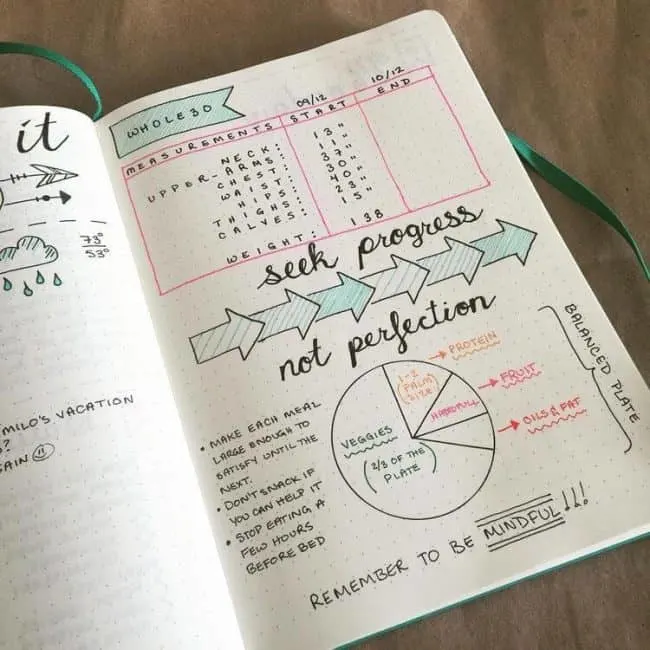 it
73°
53°
MILO'S VACATION
?
AIN ☺
WHOLE30
09/12 10/12
MEASUREMENTS START END
NECK: 13"
UPPER-ARMS: 11"
CHEST: 37"
WAIST: 30"
HIPS: 40"
THIGHS: 23"
CALVES: 15"
WEIGHT: 138
seek progress
not perfection
• MAKE EACH MEAL
LARGE ENOUGH TO
SATISFY UNTIL THE
NEXT.
• DON'T SNACK IF
YOU CAN HELP IT
• STOP EATING A
FEW HOURS
BEFORE BED
VEGGIES
(2/3 OF THE
PLATE)
1-2
(PALM)
SIZE
PROTEIN
HANDFULL
FRUIT
OILS & FAT
BALANCED PLATE
REMEMBER TO BE MINDFUL!!!